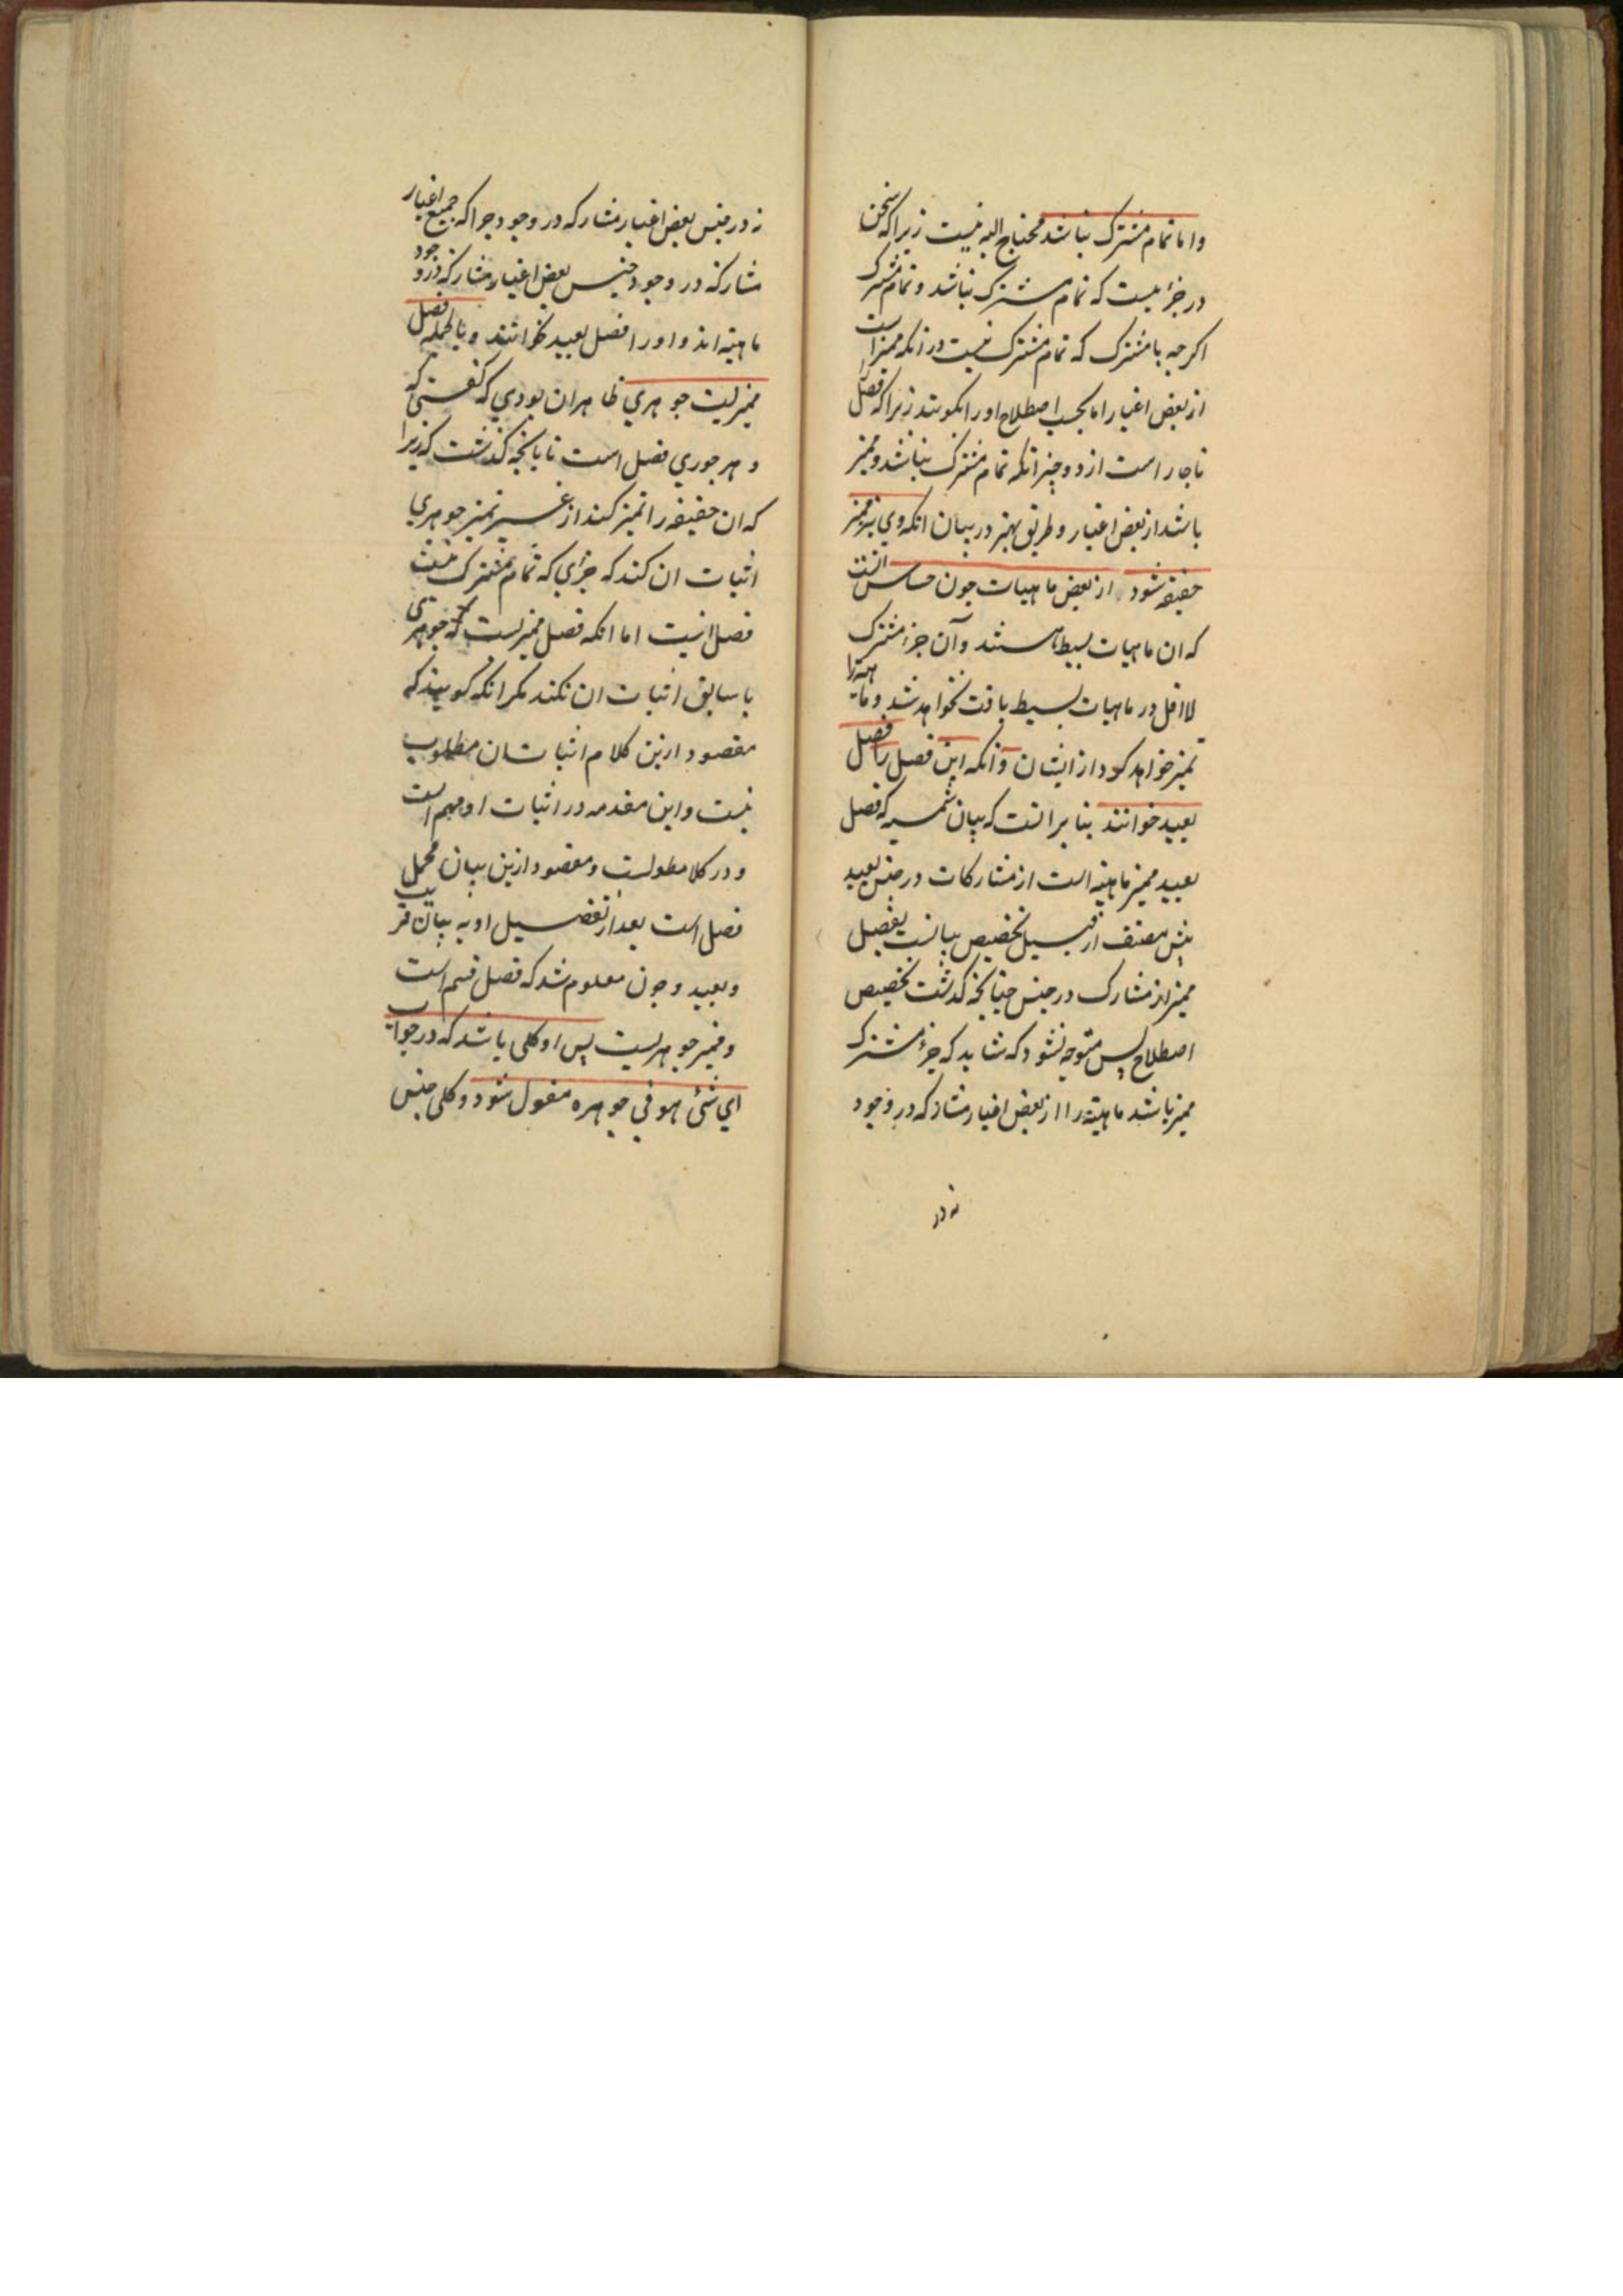 واما تمام مشترک نباشد محتاج الیه نیست زیراکه سخن
در جزٔیست که تمام مشترک نباشد و تمام مشترک
اکرچه با مشترک که تمام مشترک نیست در انکه ممیز است
از بعض اغیار اما بحسب اصطلاح اورا نکویند زیراکه فصل را
ناچار است از دو چیز انکه تمام مشترک نباشد و ممیز
باشد از بعض اغیار و طریق بهتر در بیان انکه وی نیز ممیز
حقیقة شود از بعض ماهیات چون حساس انست
که ان ماهیات بسیط باشند و آن جزء مشترک
لااقل در ماهیات بسیط یافت نخواهد شد و ماهیة را
تمیز خواهد کرد از ایشان و آنکه این فصل را فصل
بعید خوانند بنا بر انست که بیان شمسیه که فصل
بعید ممیز ماهیة است از مشارکات در جنس بعید
پیش مصنف از قبیل تخصیص بیانست بفصل
ممیز از مشارک در جنس چنانچه کذشت تخصیص
اصطلاح پس متوجه نشود که شاید که جزء مشترک
ممیز باشد ماهیة را از بعض اغیار مشارکه در وجود
نه در
نه در جنس بعض اغیار مشارکه در وجود چراکه جمیع اغیار
مشارکه در وجود جنس بعض اغیار مشارکه در وجود
ماهیة اند و اورا فصل بعید نخوانند و بالجمله فصل
ممیزیست جوهری ظاهر ان بودی که کفتی که
و هر جوهری فصل است تا بانچه کذشت که زیرا
که ان حقیقة را تمیز کند از غیر تمییز جوهری
اثبات ان کند که جزٔی که تمام مشترک نیست
فصل است اما انکه فصل ممیزیست جوهری
با سابق اثبات ان نکند مکر انکه کویند که
مقصود ازین کلام اثبات ان مطلوب
نیست و این مقدمه در اثبات او مهم است
و در کلا مطولست و مقصود ازین بیان مجمل
فصل است بعد از تفصیل او به بیان قریب
و بعید و چون معلوم شد که فصل قسم است
و ممیز جوهریست پس او کلی باشد که در جواب
ای شئ هو فی جوهره مقول شود و کلی جنس